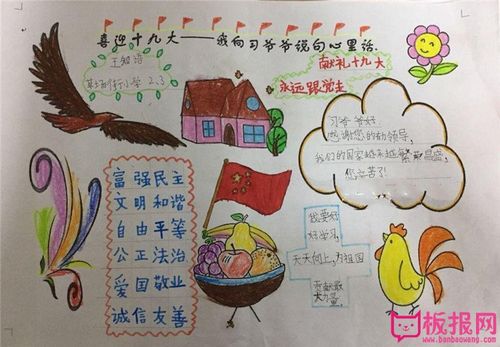 喜迎十九大——我向习爷爷说句心里话
献礼十九大
永远跟党走
2.3
习爷爷好
感谢您的领导,
我们的国家越来越繁荣昌盛,
您辛苦了!
富强民主
文明和谐
自由平等
公正法治
爱国敬业
诚信友善
我要好
好学习,
天天向上,为祖国
贡献最
大力量。
板报网
www.banbaowang.com